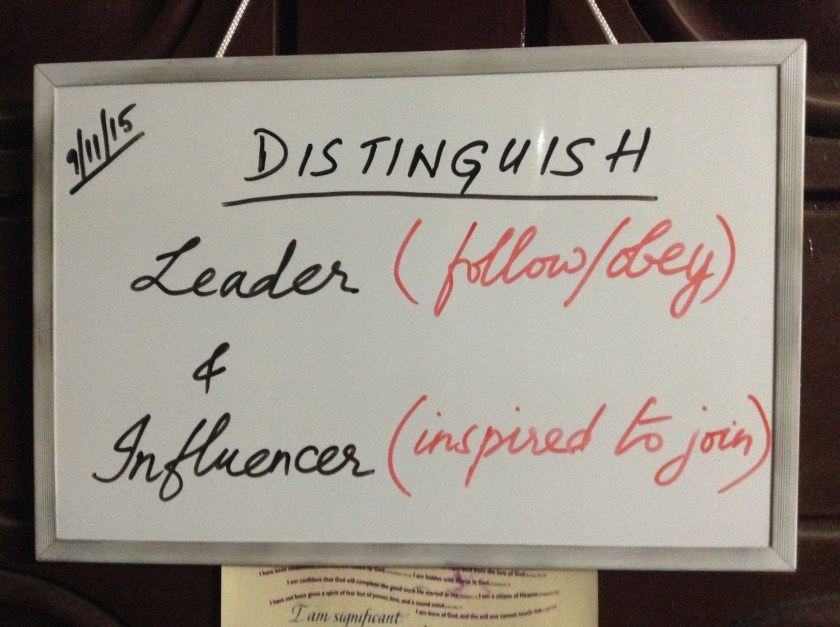 9/11/15
DISTINGUISH
Leader (follow/obey)
&
Influencer (inspired to join)
I am confident that God will complete the good work He started in me
I am hidden with Christ in God
I am a citizen of Heaven
I have not been given a spirit of fear but of power, love, and a sound mind
I am significant
I am born of God, and the evil one cannot touch me